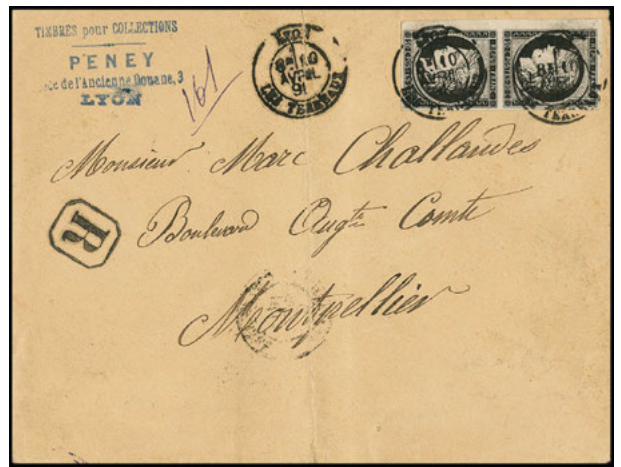 TIMBRES pour COLLECTIONS
PENEY
de l'Ancienne Douane, 3
LYON
161
LYON
10
AVRIL
91
LES TERREAUX
10
AVRIL
10
R
Monsieur Marc Challandes
Boulevard Augte Comte
Montpellier